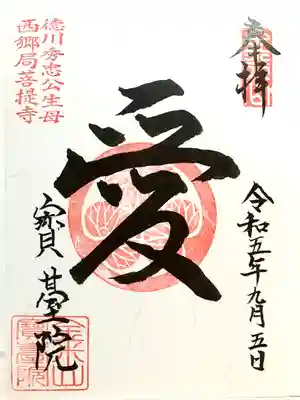 奉拝
徳川秀忠公生母
西郷局菩提寺
愛
令和五年九月五日
寳䑓院